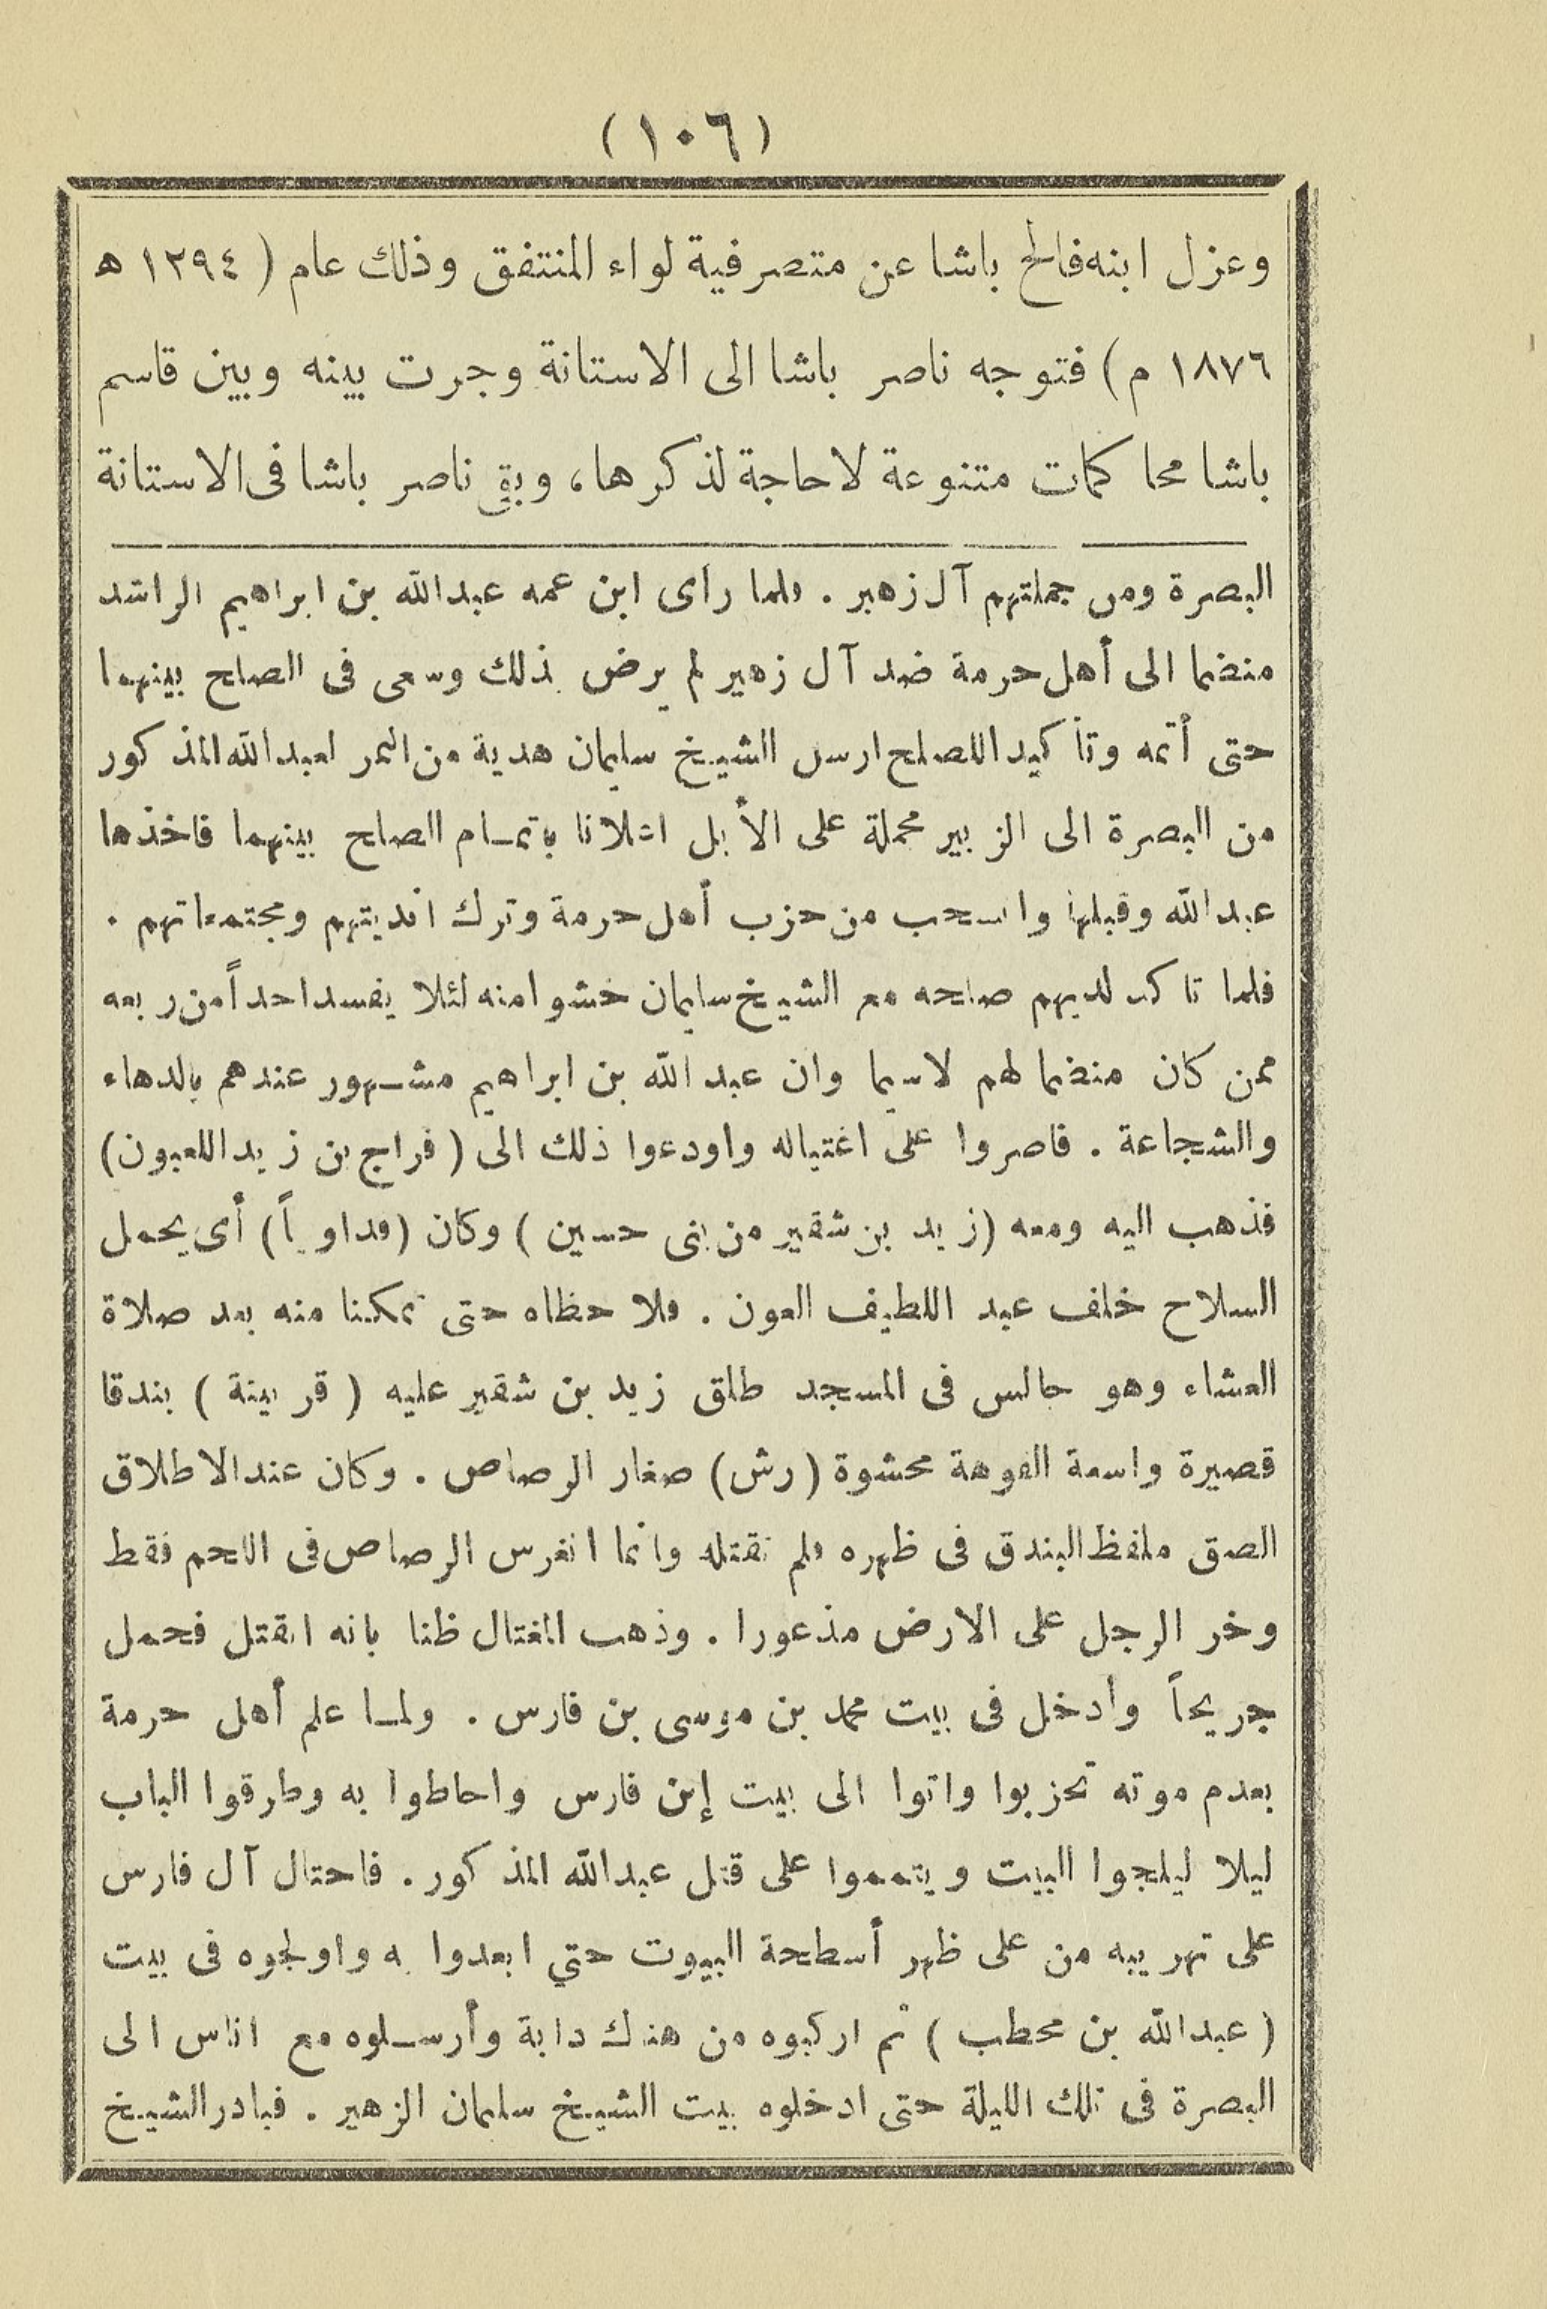 (١٠٦)
وعزل ابنه فالح باشا عن متصرفية لواء المنتفق وذلك عام ( ١٢٩٤ ه
١٨٧٦ م) فتوجه ناصر باشا الى الاستانة وجرت بينه وبين قاسم
باشا محاكمات متنوعة لا حاجة لذكرها، وبقي ناصر باشا فى الاستانة
البصرة ومن جملتهم آل زهير . فلما رأى ابن عمه عبدالله بن ابراهيم الراشد
منضما الى أهل حرمة ضد آل زهير لم يرض بذلك وسعى فى الصلح بينهما
حتى أتمه وتأكيدا للصلح ارسل الشيخ سليمان هدية من التمر لعبدالله المذكور
من البصرة الى الزبير محملة على الأبل اعلانا باتمام الصلح بينهما فاخذها
عبدالله وقبلها وانسحب من حزب أهل حرمة وترك انديتهم ومجتمعاتهم .
فلما تاكد لديهم صلحه مع الشيخ سليمان خشوا منه لئلا يفسد احداً من ربعه
ممن كان منضما لهم لاسيما وان عبد الله بن ابراهيم مشهور عندهم بالدهاء
والشجاعة . فاصروا على اغتياله واودعوا ذلك الى ( فراج بن زيد اللعبون)
فذهب اليه ومعه (زيد بن شقير من بنى حسين ) وكان (فداوياً) أى يحمل
السلاح خلف عبد اللطيف العون . فلا حظاه حتى تمكنا منه بعد صلاة
العشاء وهو جالس فى المسجد طلق زيد بن شقير عليه ( قربينة ) بندقا
قصيرة واسعة الفوهة محشوة (رش) صغار الرصاص . وكان عند الاطلاق
الصق ملفظ البندق فى ظهره فلم تقتله وانما انغرس الرصاص فى اللحم فقط
وخر الرجل على الارض مذعورا . وذهب المغتال ظنا بانه انقتل فحمل
جريحاً وأدخل فى بيت محمد بن موسى بن فارس . ولما علم أهل حرمة
بعدم موته تحزبوا واتوا الى بيت إبن فارس واحاطوا به وطرقوا الباب
ليلا ليلجوا البيت ويتمموا على قتل عبدالله المذكور . فاحتال آل فارس
على تهريبه من على ظهر أسطحة البيوت حتي ابعدوا به واولجوه فى بيت
( عبدالله بن محطب ) ثم اركبوه من هناك دابة وأرسلوه مع اناس الى
البصرة فى تلك الليلة حتى ادخلوه بيت الشيخ سليمان الزهير . فبادر الشيخ